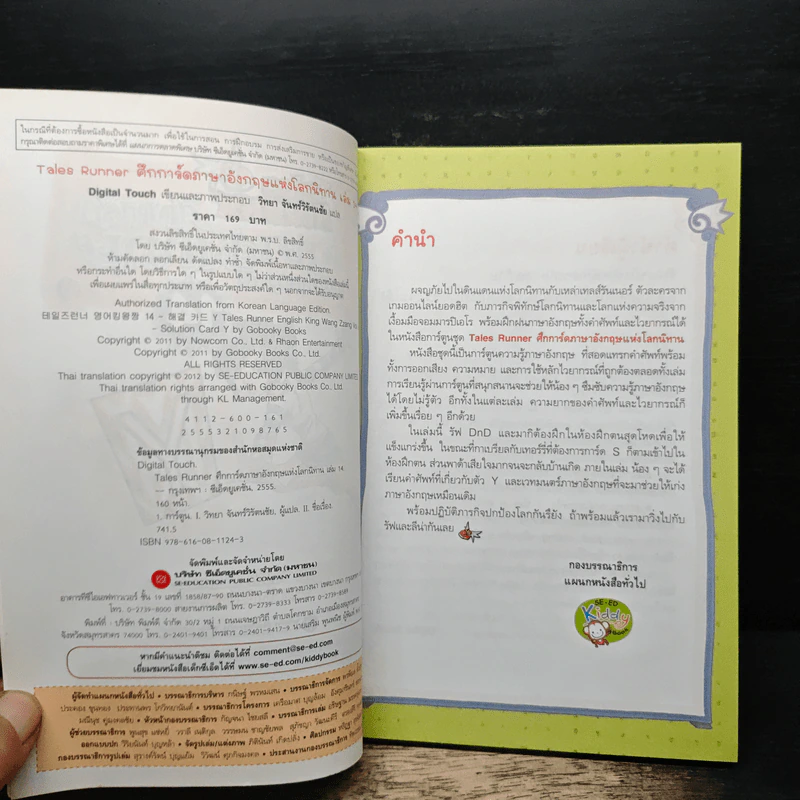 ในกรณีที่ต้องการซื้อหนังสือเป็นจำนวนมาก เพื่อใช้ในการสอน การฝึกอบรม การส่งเสริมการขาย
กรุณาติดต่อสอบถามราคาพิเศษได้ที่ แผนกการตลาดพิเศษ บริษัท ซีเอ็ดยูเคชั่น จำกัด (มหาชน) โทร.
Tales Runner ศึกการ์ดภาษาอังกฤษแห่งโลกนิทาน เล่ม
Digital Touch เขียนและภาพประกอบ วิทยา จันทร์วิรัตนชัย แปล
ราคา 169 บาท
สงวนลิขสิทธิ์ในประเทศไทยตาม พ.ร.บ. ลิขสิทธิ์
โดย บริษัท ซีเอ็ดยูเคชั่น จำกัด (มหาชน) © พ.ศ. 2555
ห้ามคัดลอก ลอกเลียน ดัดแปลง ทำซ้ำ จัดพิมพ์เนื้อหาและภาพประกอบ
หรือกระทำอื่นใด โดยวิธีการใด ๆ ในรูปแบบใด ๆ ไม่ว่าส่วนหนึ่งส่วนใดของหนังสือเล่มนี้
เพื่อเผยแพร่ในสื่อทุกประเภท หรือเพื่อวัตถุประสงค์ใด ๆ นอกจากจะได้รับอนุญาต
Authorized Translation from Korean Language Edition.
테일즈런너 영어킹왕짱 14 - 해결 카드 Y Tales Runner English King Wang Zzang
- Solution Card Y by Gobooky Books
Copyright © 2011 by Nowcom Co., Ltd. & Rhaon Entertainment
Copyright © 2011 by Gobooky Books Co., Ltd.
ALL RIGHTS RESERVED
Thai copyright © 2012 by SE-EDUCATION PUBLIC COMPANY LIMITED
Thai translation rights arranged with Gobooky Books Co., Ltd.
through KL Management.
4112-600-161
2555321098765
ข้อมูลทางบรรณานุกรมของสำนักหอสมุดแห่งชาติ
Digital Touch.
Tales Runner ศึกการ์ดภาษาอังกฤษแห่งโลกนิทาน เล่ม 14.
-- กรุงเทพฯ : ซีเอ็ดยูเคชั่น, 2555.
160 หน้า.
1. การ์ตูน. I. วิทยา จันทร์วิรัตนชัย, ผู้แปล. II. ชื่อเรื่อง.
741.5
ISBN 978-616-08-1124-3
จัดพิมพ์และจัดจำหน่ายโดย
บริษัท ซีเอ็ดยูเคชั่น จำกัด (มหาชน)
SE-EDUCATION PUBLIC COMPANY LIMITED
อาคารทีซีไอเอฟทาวเวอร์ ชั้น 19 เลขที่ 1858/87-90 ถนนบางนา-ตราด แขวงบางนา
โทร. 0-2739-8000 สายงานการผลิต โทร. 0-2739-8333 โทรสาร 0-2739-8589
พิมพ์ที่ : บริษัท พิมพ์ดี จำกัด 30/2 หมู่ 1 ถนนเจษฎาวิถี ตำบลโคกขาม อำเภอเมืองสมุทรสาคร
จังหวัดสมุทรสาคร 74000 โทร. 0-2401-9401 โทรสาร 0-2401-9417
หากมีคำแนะนำติชม ติดต่อได้ที่ comment@se-ed.com
เยี่ยมชมหนังสือเด็กซีเอ็ดได้ที่ www.se-ed.com/kiddybook
ผู้จัดทำแผนกหนังสือทั่วไป • บรรณาธิการบริหาร กนิษฐ์ พรหมเสน • บรรณาธิการจัดการ
• บรรณาธิการโครงการ เครือมาศ บุญล้อม
• หัวหน้ากองบรรณาธิการ กัญจนา ไชยสลี • บรรณาธิการเล่ม
ผู้ช่วยบรรณาธิการ
ออกแบบปก วิริยนันท์ บุญหล้า • จัดรูปเล่ม/แต่งภาพ กิตินันท์ เกิดปลั่ง • ติดปกรรม
กองบรรณาธิการรูปเล่ม • ประสานงานกองบรรณาธิการ
คำนำ
ผจญภัยไปในดินแดนแห่งโลกนิทานกับเหล่าเทลส์รันเนอร์ ตัวละครจาก
เกมออนไลน์ยอดฮิต กับภารกิจพิทักษ์โลกนิทานและโลกแห่งความจริงจาก
เงื้อมมือจอมมารปีเอโร พร้อมฝึกฝนภาษาอังกฤษทั้งคำศัพท์และไวยากรณ์ได้
ในหนังสือการ์ตูนชุด Tales Runner ศึกการ์ดภาษาอังกฤษแห่งโลกนิทาน
หนังสือชุดนี้เป็นการ์ตูนความรู้ภาษาอังกฤษ ที่สอดแทรกคำศัพท์พร้อม
ทั้งการออกเสียง ความหมาย และการใช้หลักไวยากรณ์ที่ถูกต้องตลอดทั้งเล่ม
การเรียนรู้ผ่านการ์ตูนที่สนุกสนานจะช่วยให้น้อง ๆ ซึมซับความรู้ภาษาอังกฤษ
ได้โดยไม่รู้ตัว อีกทั้งในแต่ละเล่ม ความยากของคำศัพท์และไวยากรณ์ก็
เพิ่มขึ้นเรื่อย ๆ อีกด้วย
ในเล่มนี้ รัฟ DnD และมากิต้องฝึกในห้องฝึกตนสุดโหดเพื่อให้
แข็งแกร่งขึ้น ในขณะที่กาเบรียลกับเทอร์รี่ที่ต้องการการ์ด S ก็ตามเข้าไปใน
ห้องฝึกตน ส่วนพาต้าเสียใจมากจนจะกลับบ้านเกิด ภายในเล่ม น้อง ๆ จะได้
เรียนคำศัพท์ที่เกี่ยวกับตัว Y และเวทมนตร์ภาษาอังกฤษที่จะมาช่วยให้เก่ง
ภาษาอังกฤษเหมือนเดิม
พร้อมปฏิบัติภารกิจปกป้องโลกกันรึยัง ถ้าพร้อมแล้วเรามาวิ่งไปกับ
รัฟและลีน่ากันเลย
กองบรรณาธิการ
แผนกหนังสือทั่วไป
SE-ED
Kiddy
Book